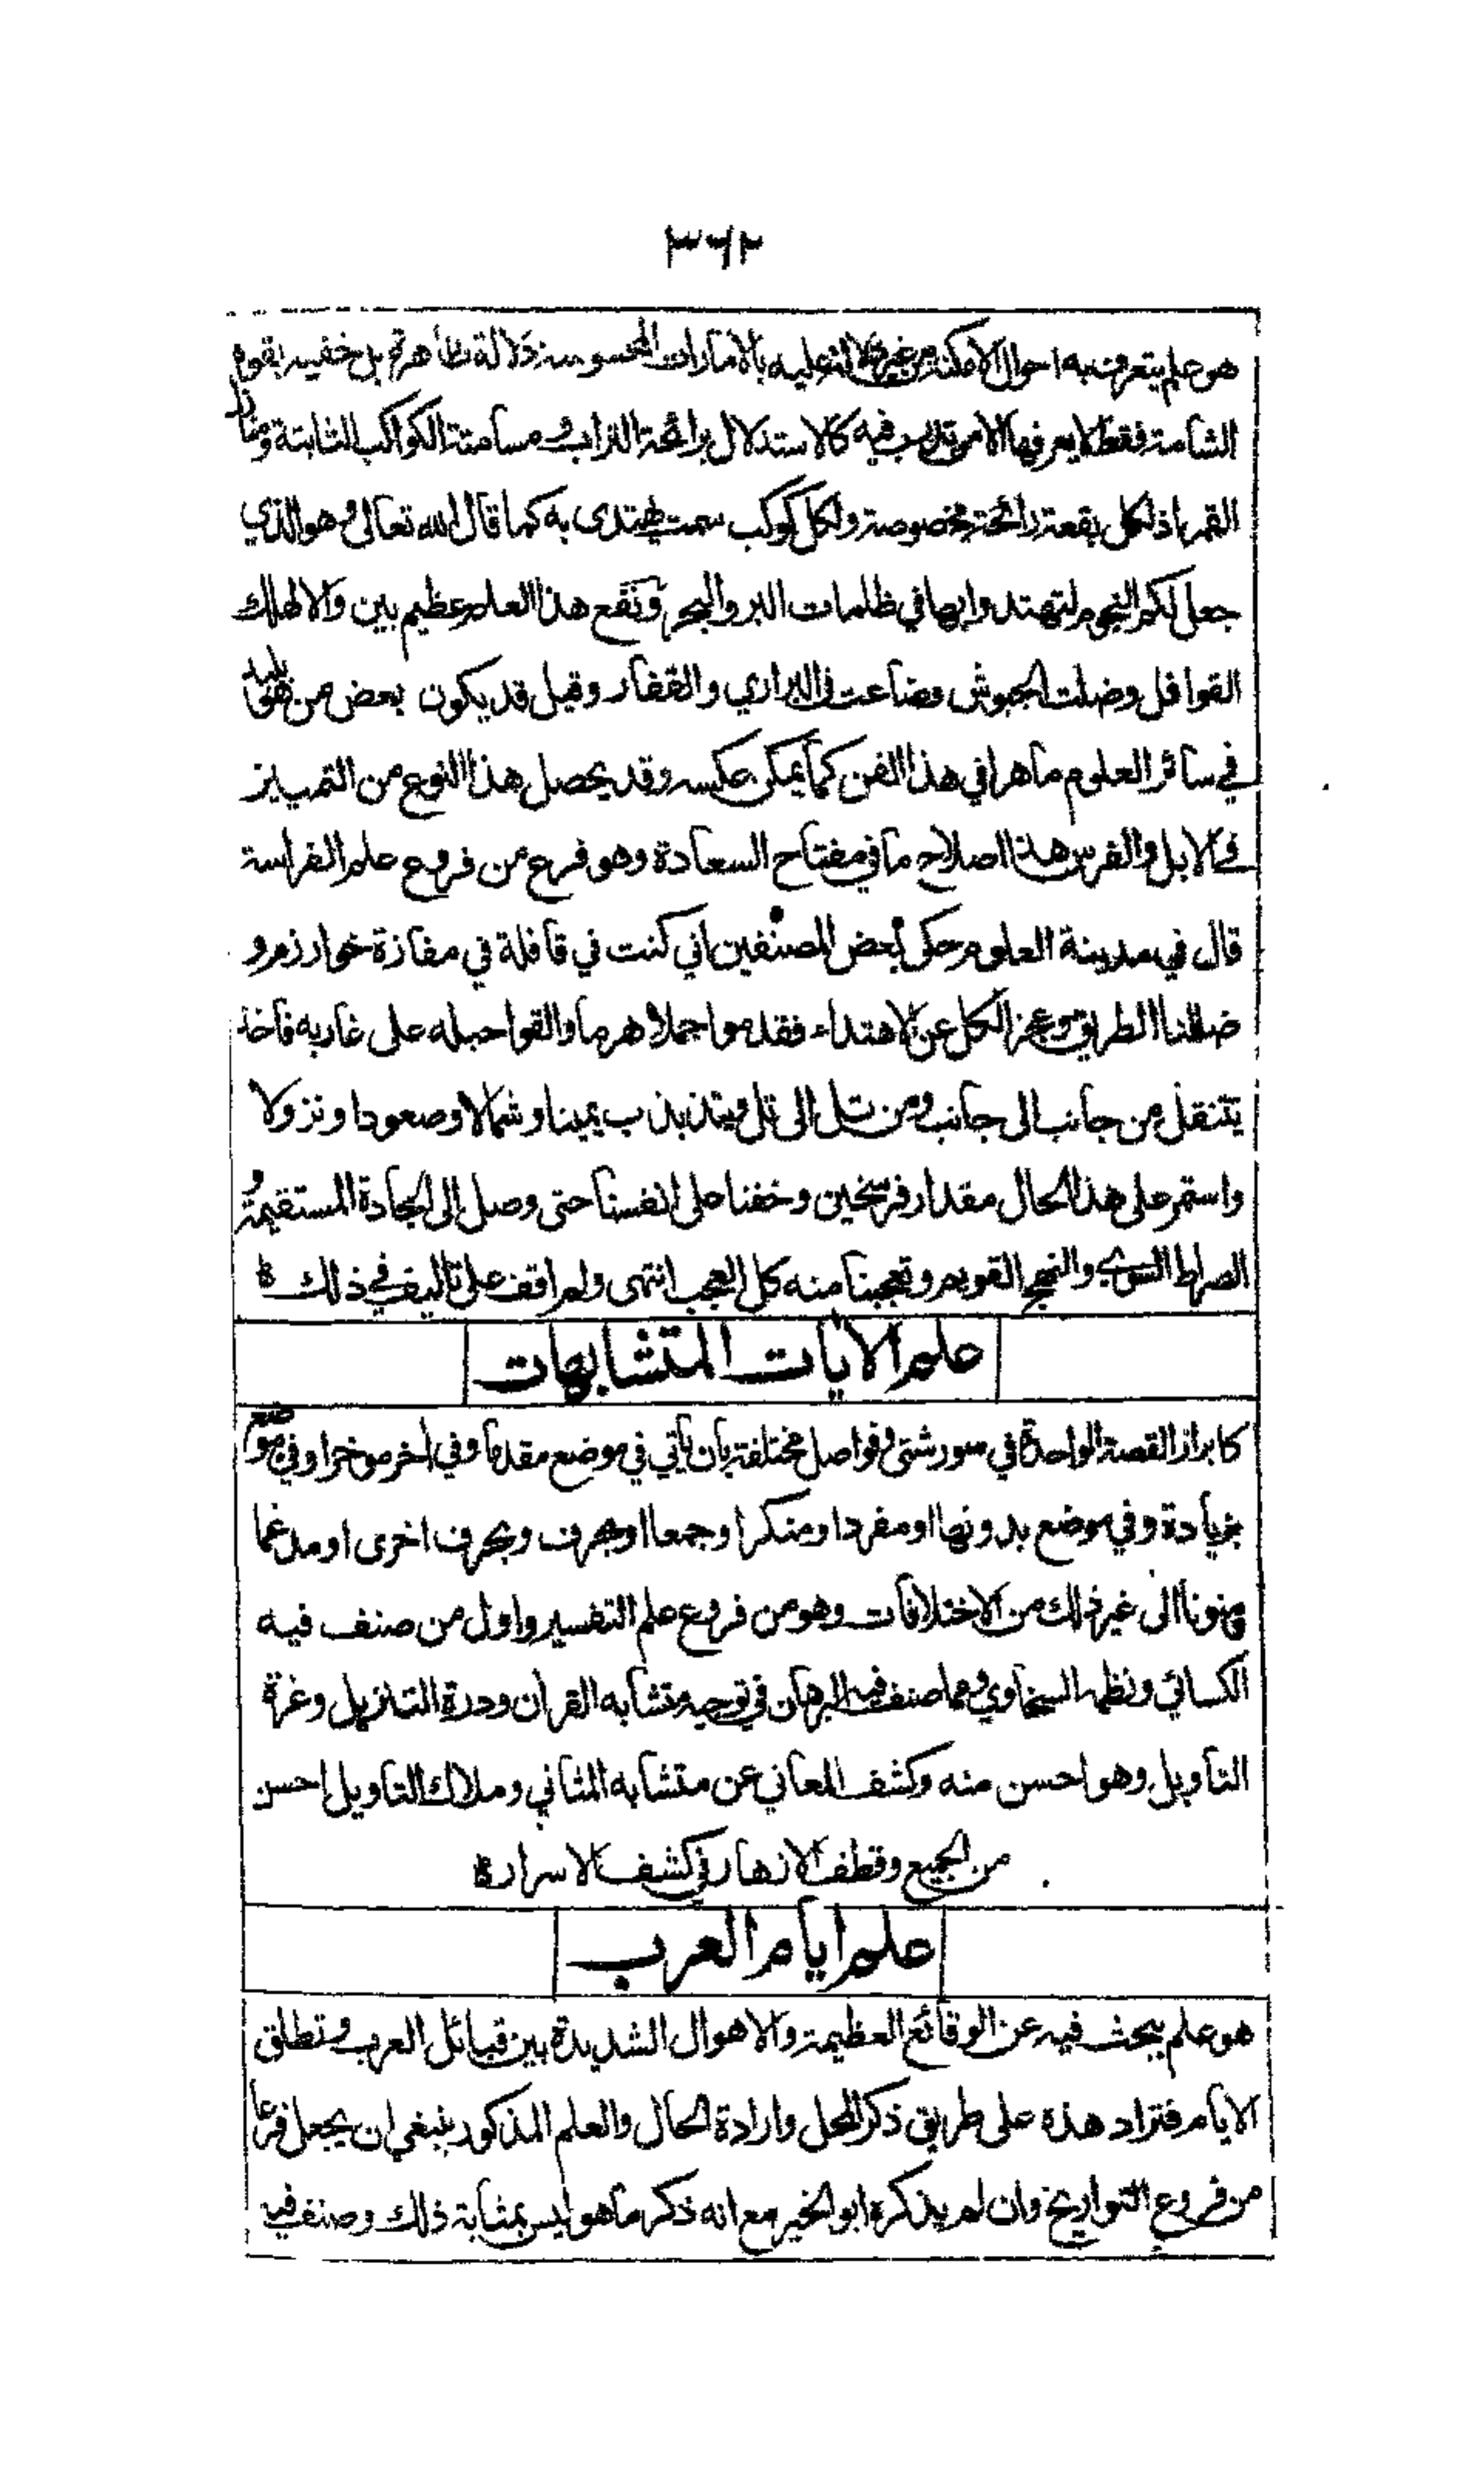 ٣٦٢
هو علم يتعرف به احوال الامكنة من غير دلالة عليه بالامارات المحسوسة دلالة ظاهرة بل خفية بقوة
الشامة فقط لا يعرفها الا من تدرب فيه كالاستدلال برائحة التراب ومسامتة الكواكب الثابتة ومنازل
القمر اذ لكل بقعة رائحة مخصوصة ولكل كوكب سمت يهتدى به كما قال الله تعالى وهو الذي
جعل لكم النجوم لتهتدوا بها في ظلمات البر والبحر ونفع هذا العلم عظيم بين والا لهلك
القوافل وضلت الجيوش وضاعت في البراري والقفار وقيل قد يكون بعض من هو بليد
في سائر العلوم ماهرا في هذا الفن كما يمكن عكسه وقد يحصل هذا النوع من التمييز
في الابل والفرس هذا اصلاح ما في مفتاح السعادة وهو فرع من فروع علم الفراسة
قال في مدينة العلوم حكى بعض المصنفين اني كنت في قافلة في مفازة خوارزم و
ضللنا الطريق وعجز الكل عن الاهتداء فقدموا جملا هرما والقوا حبله على غاربه فاخذ
يتنقل من جانب الى جانب ومن تل الى تل ويتذبذب يمينا وشمالا وصعودا ونزولا
واستمر على هذا الحال مقدار فرسخين وخفنا على انفسنا حتى وصل الى الجادة المستقيمة و
الصراط السوي والنهج القويم وتعجبنا منه كل العجب انتهى ولم اقف على تاليف في ذلك
علم الآيات المتشابهات
كابراز القصة الواحدة في سور شتى وفواصل مختلفة بان ياتي في موضع مقدما وفي اخر موخرا وفي موضع
بزيادة وفي موضع بدونها او مفردا ومنكرا وجمعا او بحرف وبحرف اخرى او مدغما
ومنونا الى غير ذلك من الاختلافات وهو من فروع علم التفسير واول من صنف فيه
الكسائي ونظمه السخاوي ومما صنف فيه البرهان في توجيه متشابه القران ودرة التنزيل وغرة
التاويل وهو احسن منه وكشف المعاني عن متشابه المثاني وملاك التاويل احسن
من الجميع وقطف الازهار في كشف الاسرار
علم ايام العرب
هو علم يبحث فيه عن الوقائع العظيمة والاهوال الشديدة بين قبائل العرب وتطلق
الايام فتراد هذه على طريق ذكر المحل وارادة الحال والعلم المذكور ينبغي ان يجعل فرعا
من فروع التواريخ وان لم يذكره ابو الخير مع انه ذكر ما هو ليس بمثابة ذلك وصنف فيه